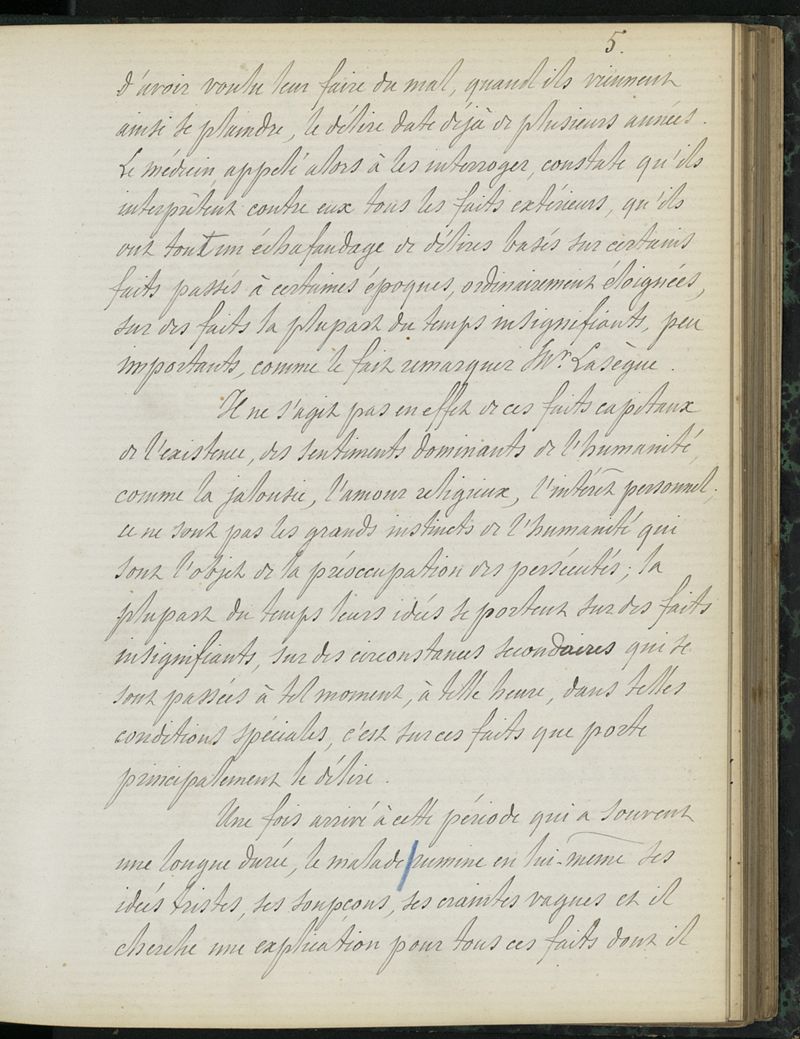 5.
d'avoir voulu leur faire du mal, quand ils viennent
ainsi se plaindre, le délire date déjà de plusieurs années.
Le médecin appelé alors à les interroger, constate qu'ils
interprètent contre eux tous les faits extérieurs, qu'ils
ont tout un échafaudage de délires basés sur certains
faits passés à certaines époques, ordinairement éloignées,
sur des faits la plupart du temps insignifiants, peu
importants, comme le fait remarquer Mr. Lasègue.
Il ne s'agit pas en effet de ces faits capitaux
de l'existence, des sentiments dominants de l'humanité,
comme la jalousie, l'amour religieux, l'intérêt personnel;
ce ne sont pas les grands instincts de l'humanité qui
sont l'objet de la préoccupation des persécutés; la
plupart du temps leurs idées se portent sur des faits
insignifiants, sur des circonstances secondaires qui se
sont passées à tel moment, à telle heure, dans telles
conditions spéciales, c'est sur ces faits que porte
principalement le délire.
Une fois arrivé à cette période qui a souvent
une longue durée, le malade rumine en lui-même ses
idées tristes, ses soupçons, ses craintes vagues et il
cherche une explication pour tous ces faits dont il